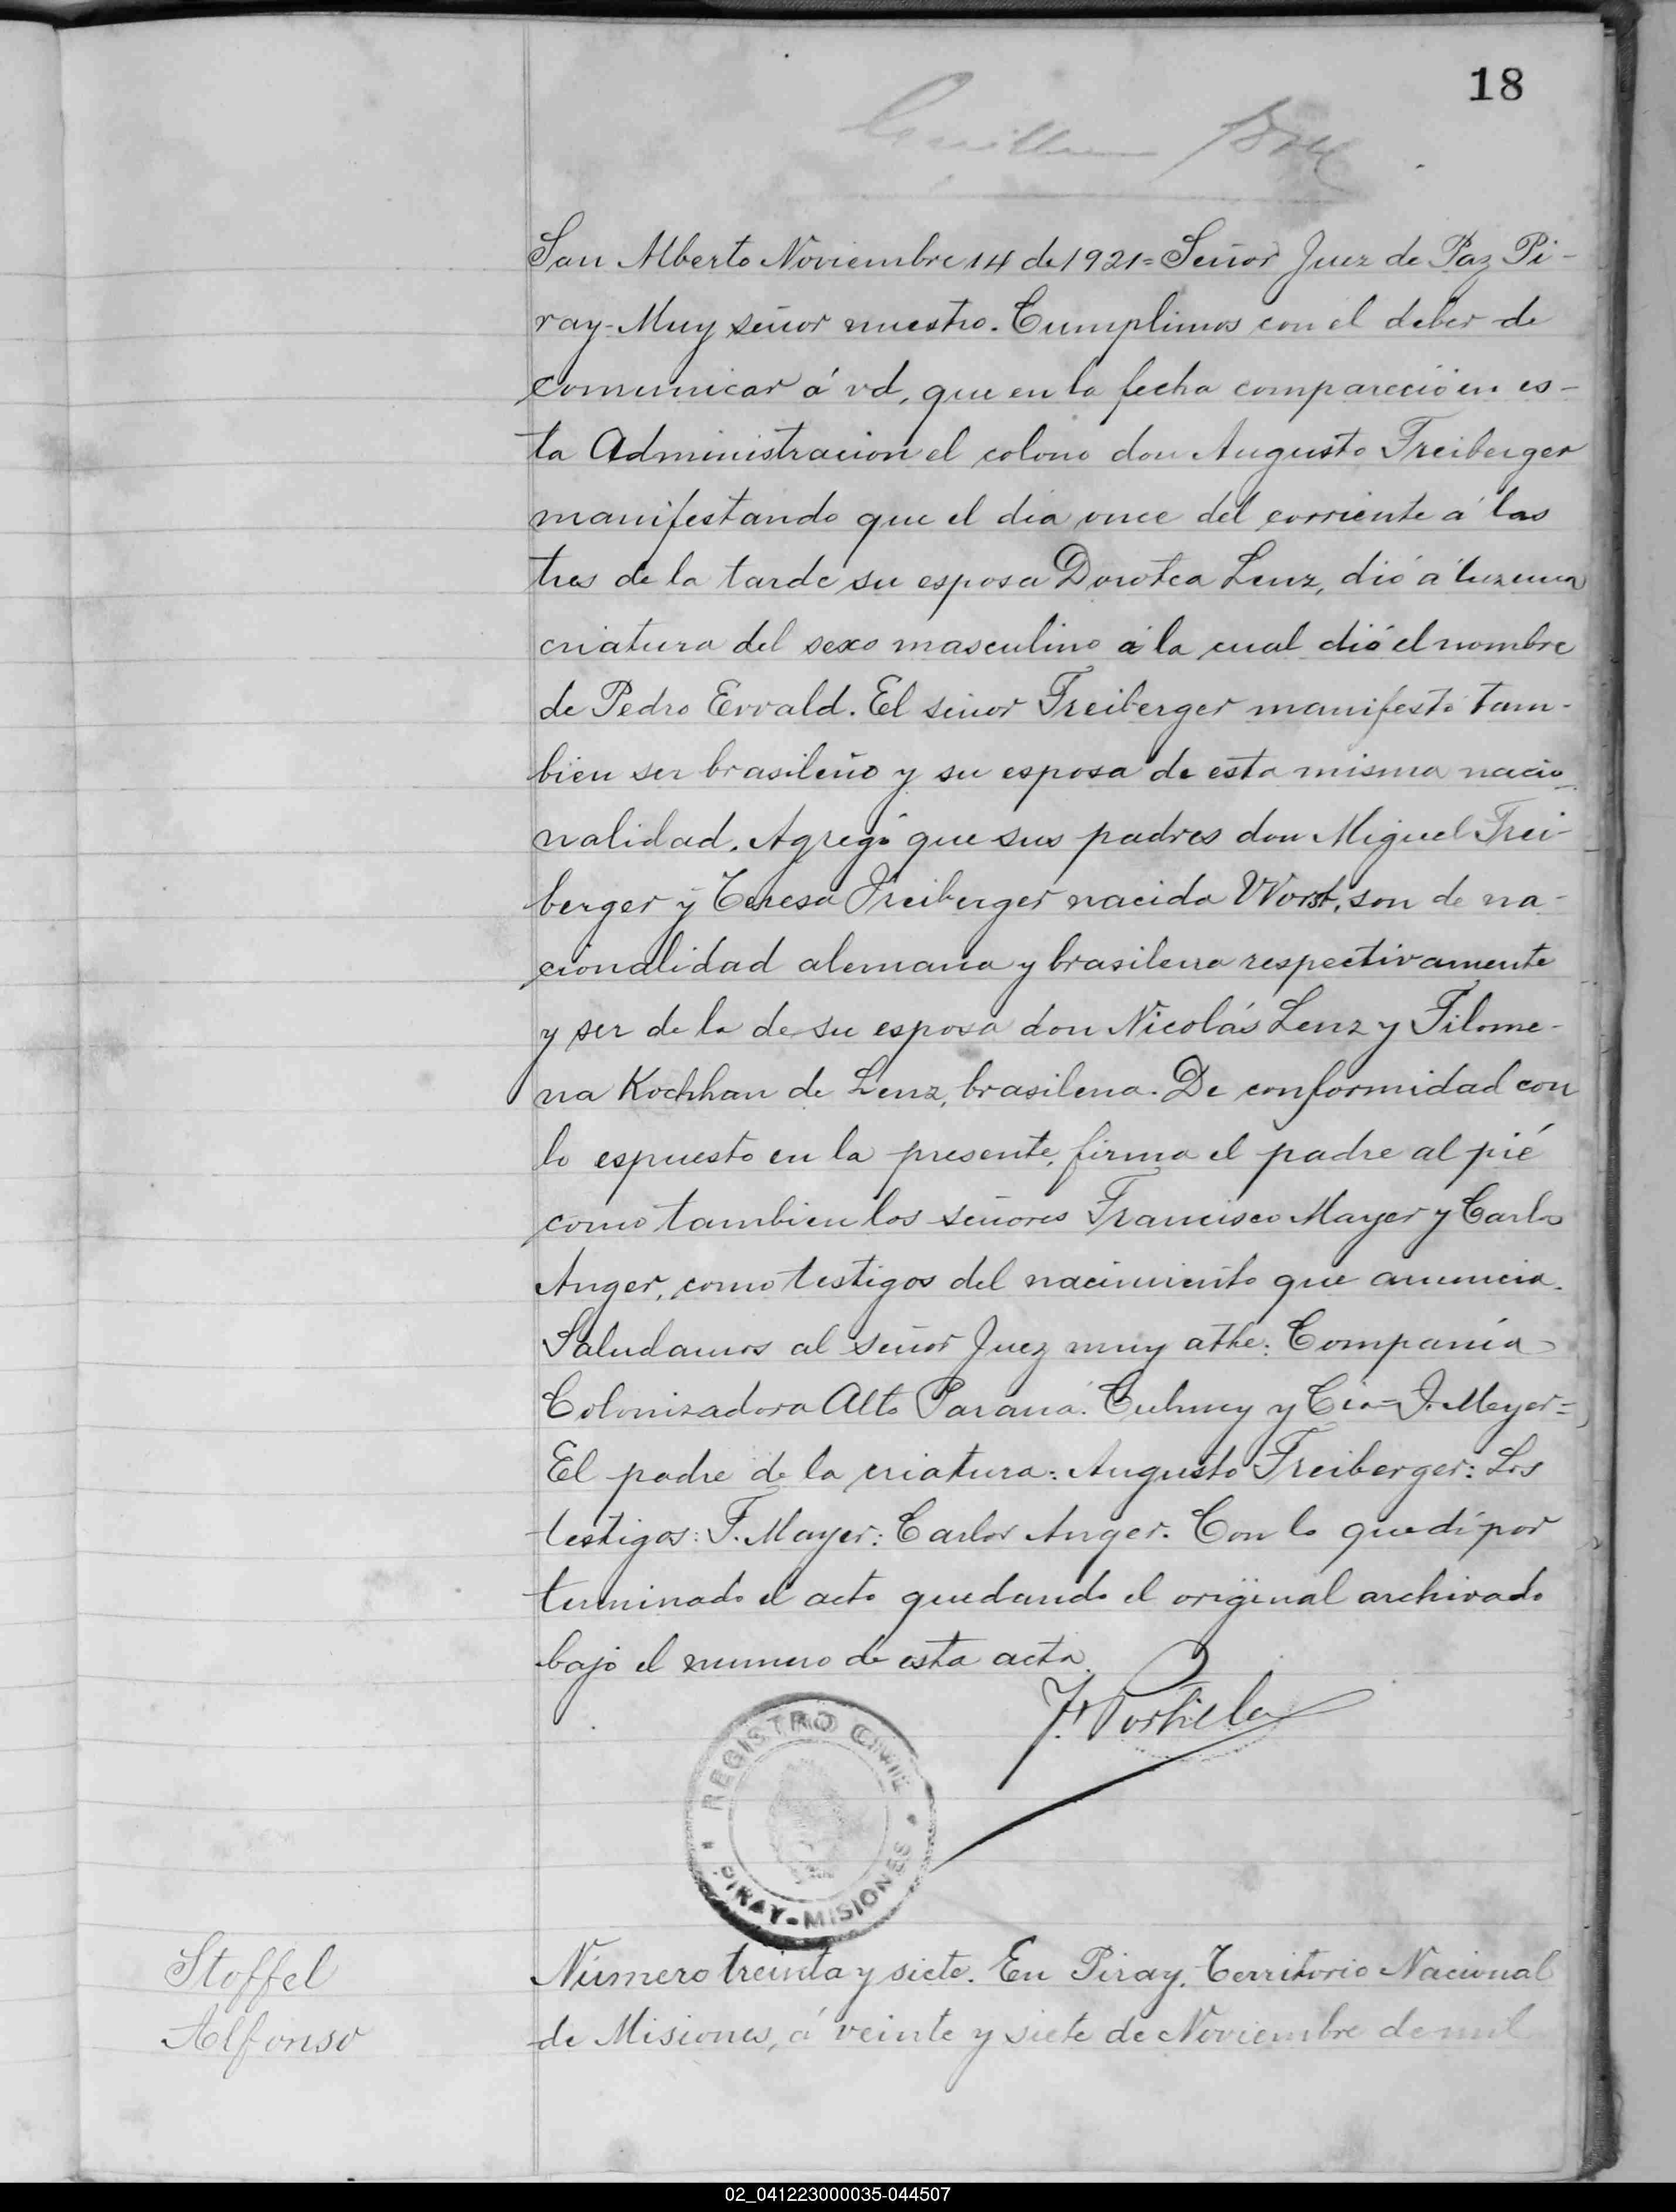 18
San Alberto Noviembre 14 de 1921= Señor Juez de Paz Pi-
ray- Muy señor nuestro. Cumplimos con el deber de
comunicar á vd, que en la fecha compareció en es-
ta Administracion el colono don Augusto Freiberger
manifestando que el dia once del corriente á las
tres de la tarde su esposa Dorotea Lenz, dió á luz una
criatura del sexo masculino á la cual dió el nombre
de Pedro Ervald. El señor Freiberger manifestó tam-
bien ser brasileño y su esposa de esta misma nacio-
nalidad. Agregó que sus padres don Miguel Frei-
berger y Teresa Freiberger nacida Worst, son de na-
cionalidad alemana y brasilena respectivamente
y ser de la de su esposa don Nicolás Lenz y Filome-
na Kochhan de Lenz, brasilena. De conformidad con
lo espuesto en la presente, firma el padre al pié
como tambien los señores Francisco Mayer y Carlo
Anger, como testigos del nacimiento que anuncia.
Saludamos al señor Juez muy atte: Compania
Colonizadora Alto Paraná. y Cia= J. Meyer=
El padre de la criatura: Augusto Freiberger: Los
testigos: F. Mayer: Carlos Anger. Con lo que dí por
terminado el acto quedando el original archivado
bajo el numero de esta acta.
REGISTRO CIVIL
PIRAY-MISIONES
Stoffel
Alfonso
Número treinta y siete. En Piray, Territorio Nacional
de Misiones, á veinte y siete de Noviembre de mil
02_041223000035-044507